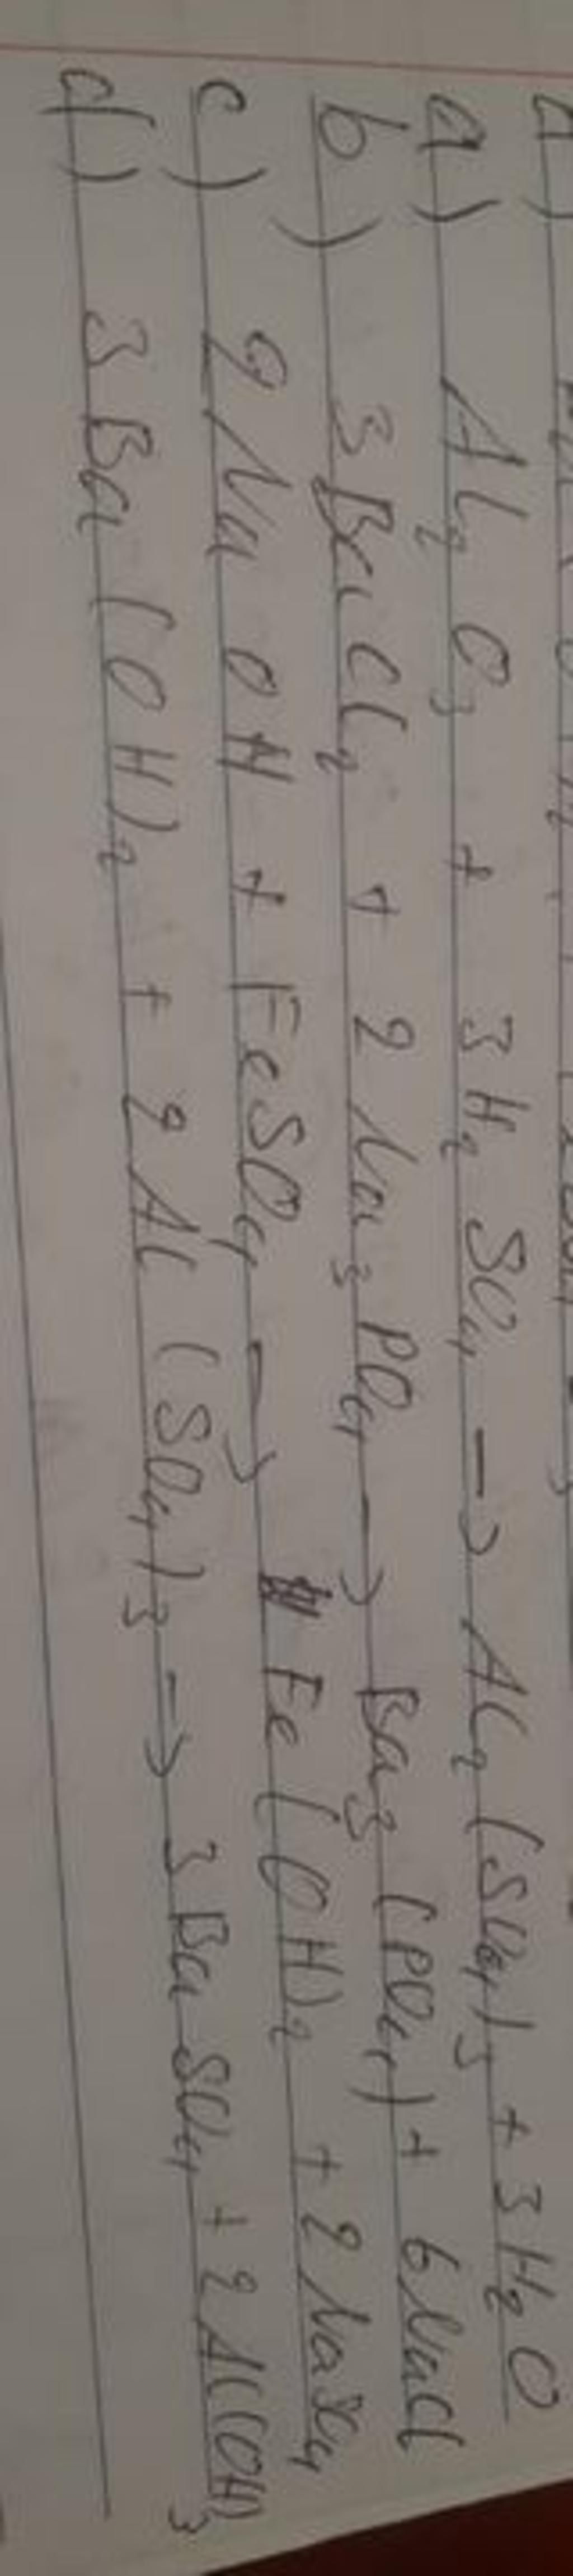 a) Al₂O₃ + 3H₂SO₄ → Al₂(SO₄)₃ + 3H₂O
b) 3BaCl₂ + 2Na₃PO₄ → Ba₃(PO₄) + 6NaCl
c) 2NaOH + FeSO₄ → Fe(OH)₂ + 2NaSO₄
d) 3Ba(OH)₂ + 2Al(SO₄)₃ → 3BaSO₄ + 2Al(OH)₃